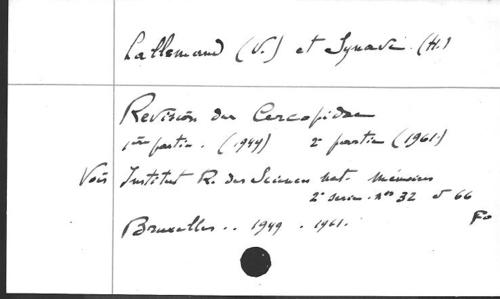 Lallemand (V.) et Synave (H.)
Revision des Cercopidae
1ère partie. (1949) 2e partie (1961)
Voir Institut R. des Sciences nat. Mémoires
2e serie. nos 32 et 66
Fo
Bruxelles.. 1949. 1961.